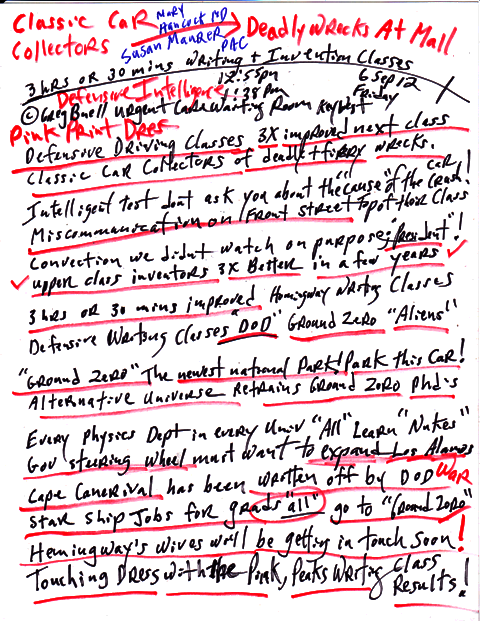 Classic Car
Collectors
Mary
Hancock MD
Susan Maurer PAC
Deadly Wrecks At Mall
3 hrs or 30 mins writing + Invention Classes
12:55pm
6 Sep 12
Defensive Intelligence
1:38 pm
Friday
© Greg Buell urgent Care Waiting Room Key West
Pink Print Dress
Defensive Driving Classes 3X improved next class
Classic Car Collectors of deadly + firry wrecks.
car
Intelligent test dont ask you about the "cause" of the crash!
Miscommunication on Front Street top of their class
Convection we didnt watch on purpose; "president"!
upper class inventors 3X Better in a few years
3 hrs or 30 mins improved Homingway Writing Classes
Defensive Writing Classes "DoD" Ground Zero "Aliens"
"Ground Zero" The newest national Park! Park this Car!
Alternative Universe Retrains Ground Zoro Phd's
Every Physics Dept in every Univ "All" Learn "Nukes"
Gov steering wheel must want to expand Los Alamos
Cape Canerival has been written off by DOD WAR
Star Ship Jobs for grads "all" go to "Ground Zoro"
Hemingway's Wives will be getting in touch soon!
Touching Dress with the Pink, Peaks Writing Class
Results!